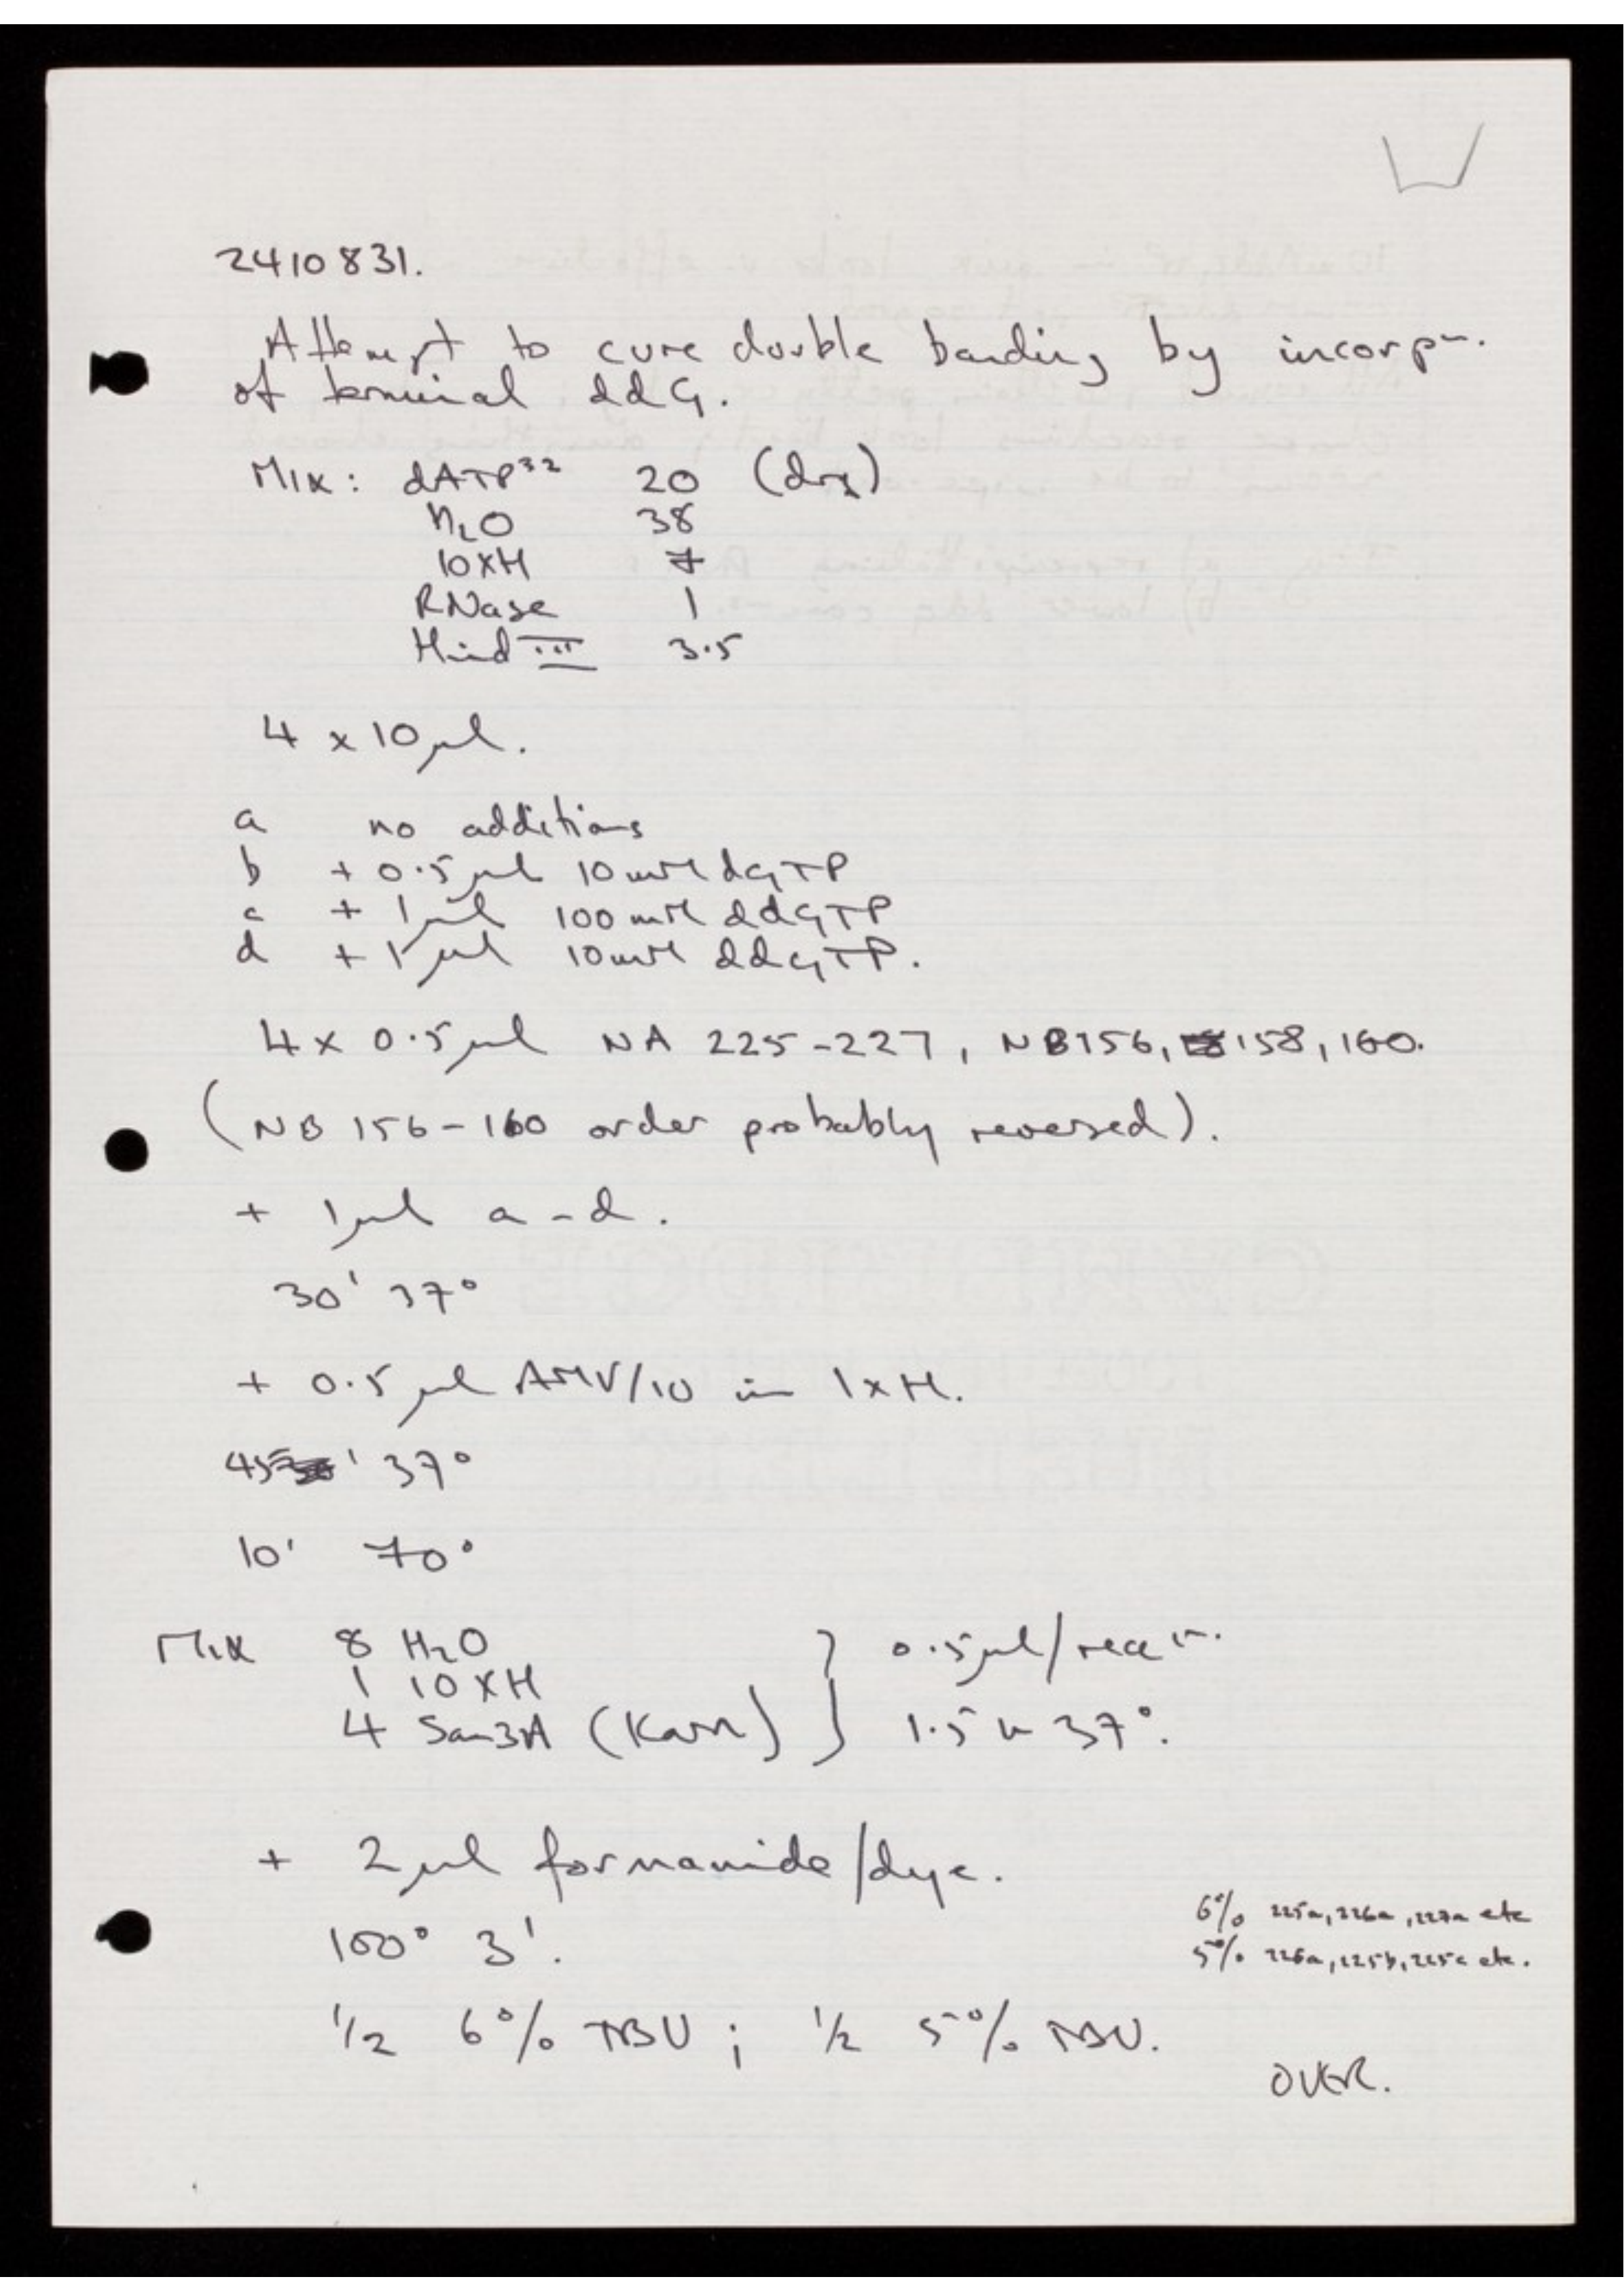 2410831.
Attempt to cure double banding by incorpn.
of terminal ddG.
Mix: dATP32 20 (dry)
H2O 38
10xH 7
RNase 1
Hind III 3.5
4 x 10 µl.
a no additions
b + 0.5 µl 10 mM dGTP
c + 1 µl 100 mM ddGTP
d + 1 µl 10 mM ddGTP.
4 x 0.5 µl NA 225-227, NB156, 158, 160.
(NB 156-160 order probably reversed).
+ 1 µl a-d.
30' 37°
+ 0.5 µl AMV/10 in 1xH.
45' 37°
10' 70°
Mix 8 H2O } 0.5 µl/reacn.
1 10xH
4 Sau3A (Karn) } 1.5 h 37°.
+ 2 µl formamide/dye.
6% 225a, 226a, 227a etc
100° 3'.
5% 225b, 225c etc.
1/2 6% TBU; 1/2 5% TBU.
OVER.